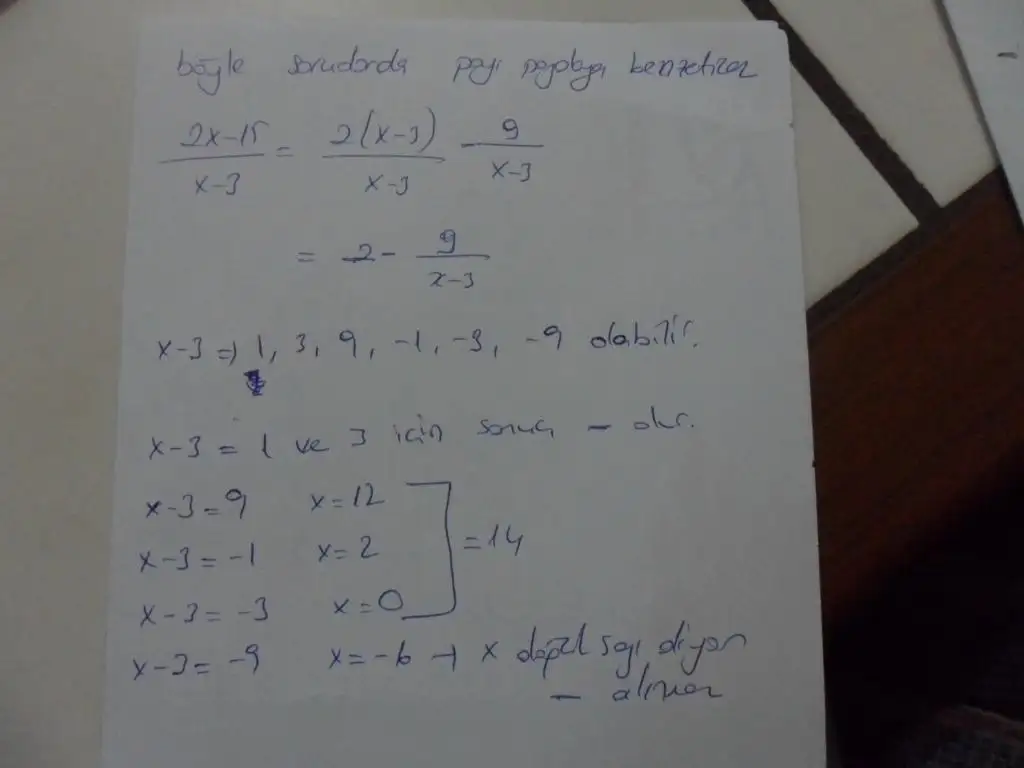 böyle sorularda payı paydaya benzetiriz
2x-15/x-3 = 2(x-3)/x-3 - 9/x-3
= 2 - 9/x-3
x-3 => 1, 3, 9, -1, -3, -9 olabilir.
x-3 = 1 ve 3 için sonuç - olur.
x-3 = 9 x = 12
x-3 = -1 x = 2 = 14
x-3 = -3 x = 0
x-3 = -9 x = -6 → x doğal sayı diyor
- alınmaz